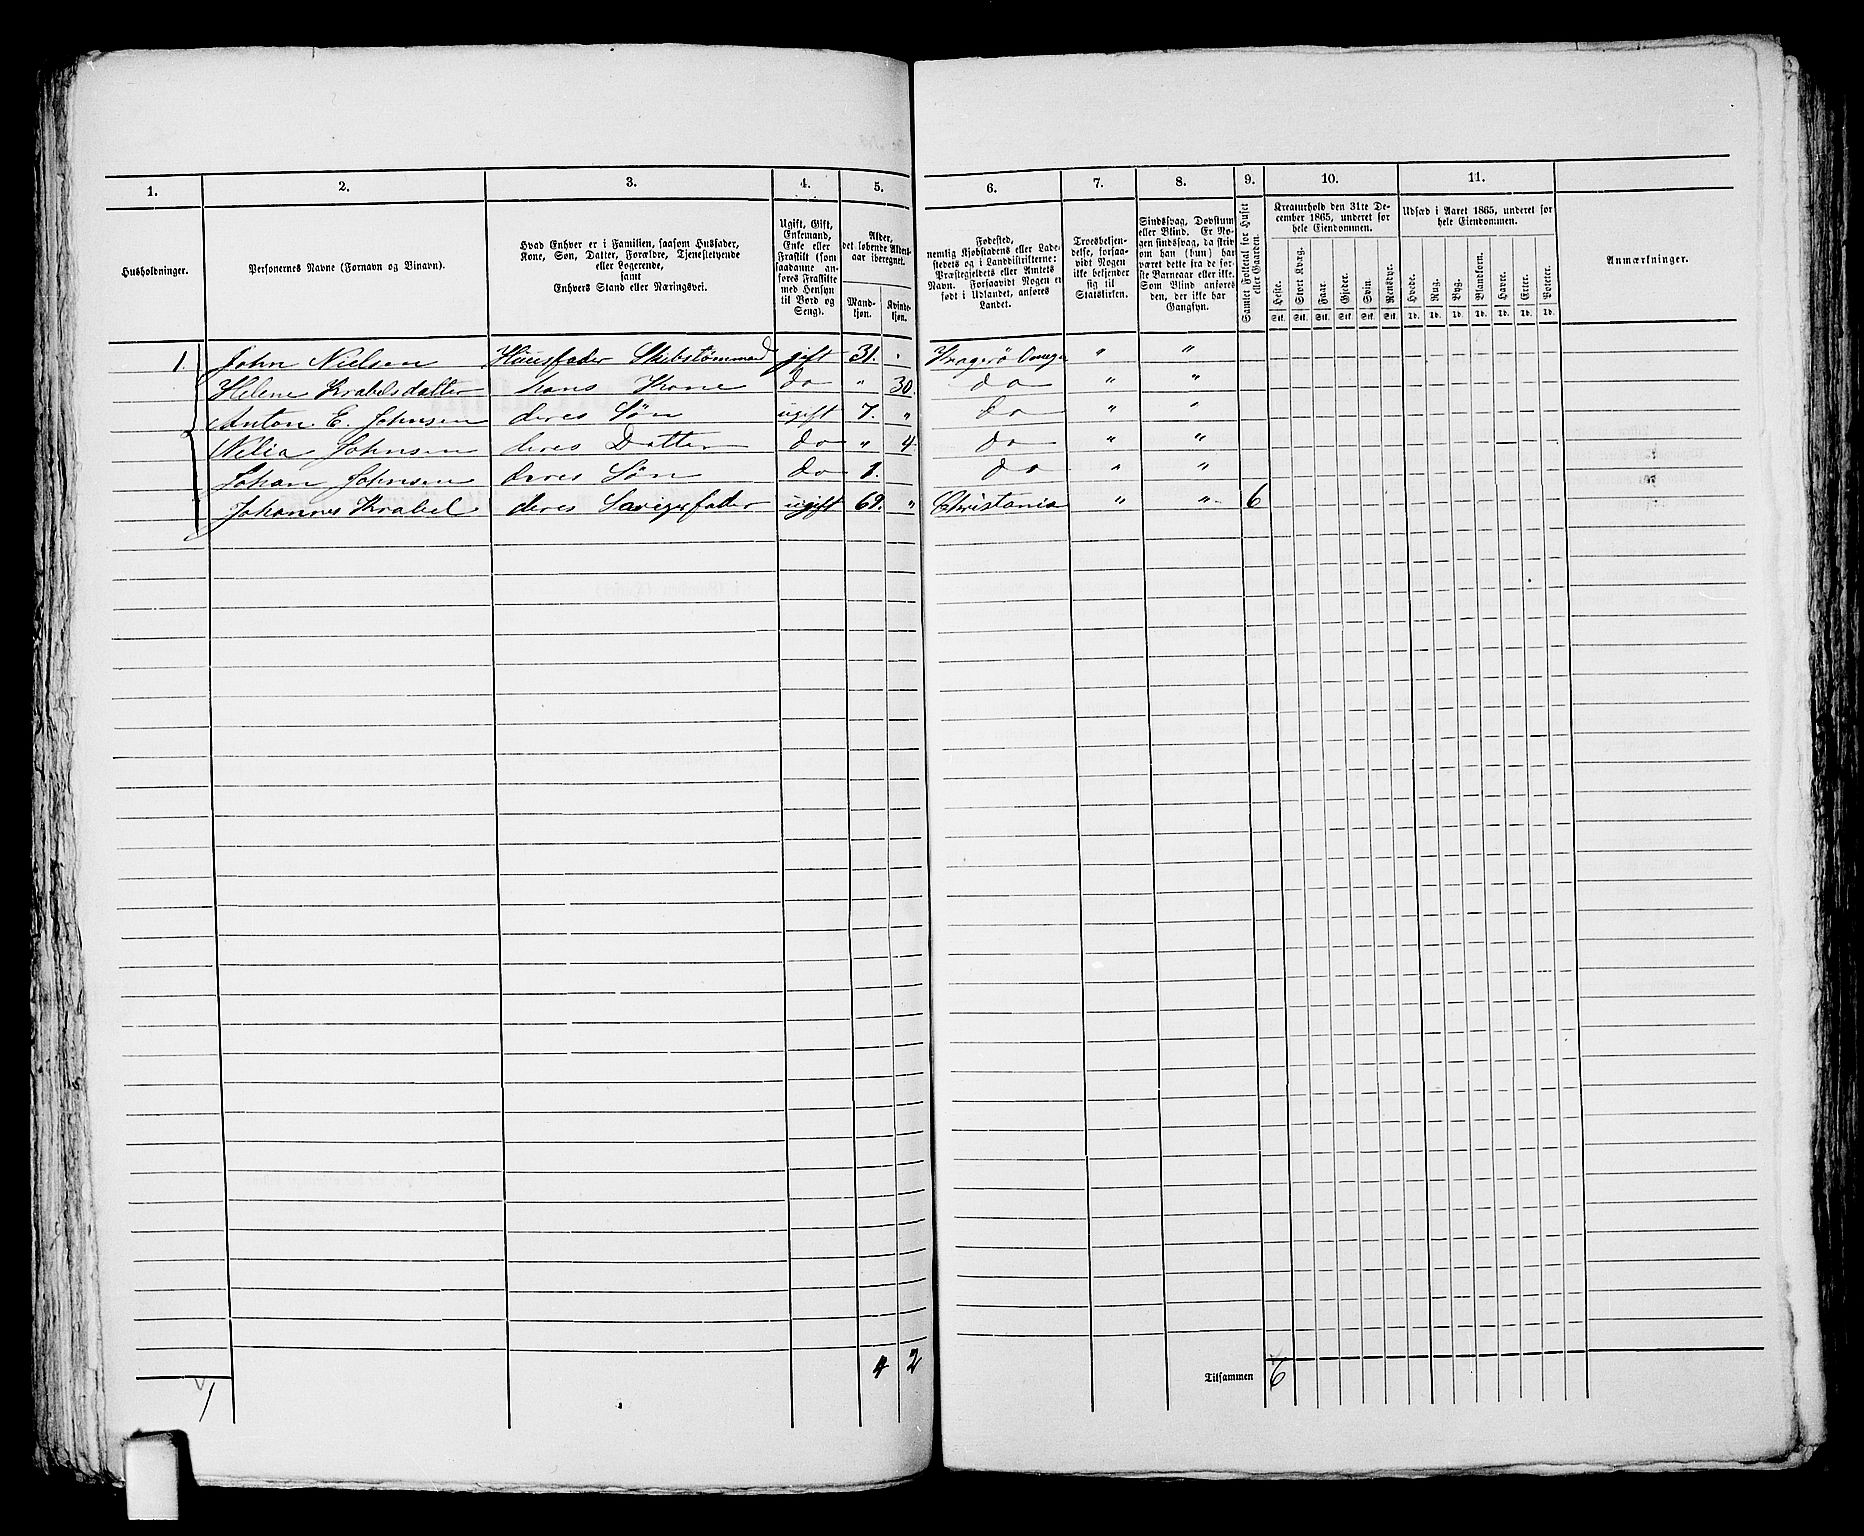 1. 2. 3. 4. 5. 6. 7. 8. 9. 10. 11.
Husholdninger.
Personernes Navne (Fornavn og Binavn).
Hvad Enhver er i Familien, saasom Husfader,
Kone, Søn, Datter, Forældre, Tjenestetyende
eller Logerende,
samt
Enhvers Stand eller Næringsvei.
Ugift, Gift,
Enkemand,
Enke eller
Fraskilt (som
saadanne an-
føres Fraskilte
med Hensyn
til Bord og
Seng).
Alder,
det løbende Alders-
aar iberegnet.
Mand-
kjøn.
Kvinde-
kjøn.
Fødested,
nemlig Kjøbstadens eller Lade-
stedets og i Landdistrikterne:
Præstegjeldets eller Amtets
Navn. Forsaavidt Nogen er
født i Udlandet, anføres
Landet.
Troesbekjen-
delse, forsaa-
vidt Nogen
ikke bekjender
sig til
Statskirken.
Sindssvag, Døvstum
eller Blind. Er No-
gen sindssvag, da skriv
om han (hun) har
været dette fra de før-
ste Barneaar eller ikke.
Som Blind anføres
den, der ikke har
Gangsyn.
Samlet Folketal for Huset
eller Gaarden.
Kreaturhold den 31te De-
cember 1865, underet for
hele Eiendommen.
Heste. Stort Kvæg. Faar. Gjeder. Svin. Rensdyr.
Stk. Stk. Stk. Stk. Stk. Stk.
Udsæd i Aaret 1865, underet for
hele Eiendommen.
Hvede. Rug. Byg. Blandkorn. Havre. Erter. Poteter.
Td. Td. Td. Td. Td. Td. Td.
Anmærkninger.
1. John Nielsen Huusfader Skibstømmerd gift 31. " Kragerø Omegn " "
Helene Krabelsdatter hans Kone do " 30. do " "
Anton E. Johnsen deres Søn ugift 7. " do " "
Nelia Johnsen deres Datter do " 4. do " "
Johan Johnsen deres Søn do 1. do " "
Johannes Krabel deres ugift 69. " Christania " " 6
4 2
Tilsammen 6
1